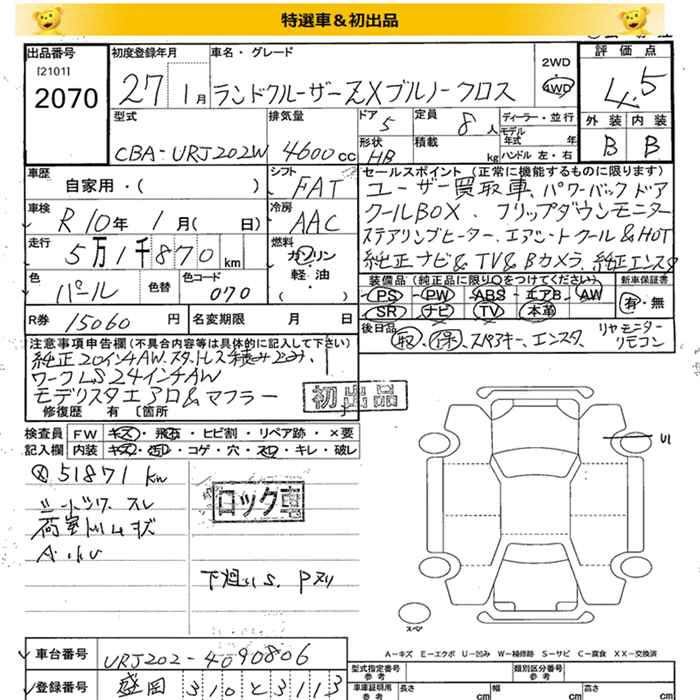 特選車＆初出品
出品番号 初度登録年月 車名・グレード 評価点
[2101]
2070 27 1月 ランドクルーザーZXブルノークロス 2WD 4WD 4.5
型式 排気量 ドア 定員 ディーラー・並行 外装 内装
CBA-URJ202W 4600cc 5 8人 モデル年式 年 B B
形状 積載 ハンドル 左・右
HB kg
車歴 自家用・( ) シフト FAT
セールスポイント (正常に機能するものに限ります)
ユーザー買取車、パワーバックドア
車検 R10年1月( 日) 冷房 AAC
クールBOX、フリップダウンモニター
ステアリングヒーター、エアシートクール&HOT
走行 5万1千870km 燃料 ガソリン 軽油・( )
純正ナビ&TV&Bカメラ 純正エンスタ
色 パール 色替 色コード 070
装備品 (純正品に限り○をつけてください) 新車保証書
PS PW ABS エアB AW 有・無
SR ナビ TV 本革
R券 15060円 名変期限 月 日
後日品 取 保 スペアキー、エンスタ リヤモニターリモコン
注意事項申告欄(不具合内容等は具体的に記入して下さい)
純正20インチAW.スタットレス積み込み、
ワークLS24インチAW
モデリスタエアロ&マフラー
修復歴 有 〔箇所
初出品
検査員 FW キズ・飛石・ヒビ割・リペア跡・×要
記入欄 内装 キズ・汚レ・コゲ・穴・スレ・キレ・破レ
51871km
ロック車
荷室トリムキズ
下廻りS、Pヌリ
U1
スペア
A－キズ E－エクボ U－凹み W－補修跡 S－サビ C－腐食 XX－交換済
車台番号 URJ202-4090806
登録番号 盛岡 310と3113
型式指定番号 参考 類別区分番号 参考
車庫証明用 参考 長さ cm 幅 cm 高さ cm